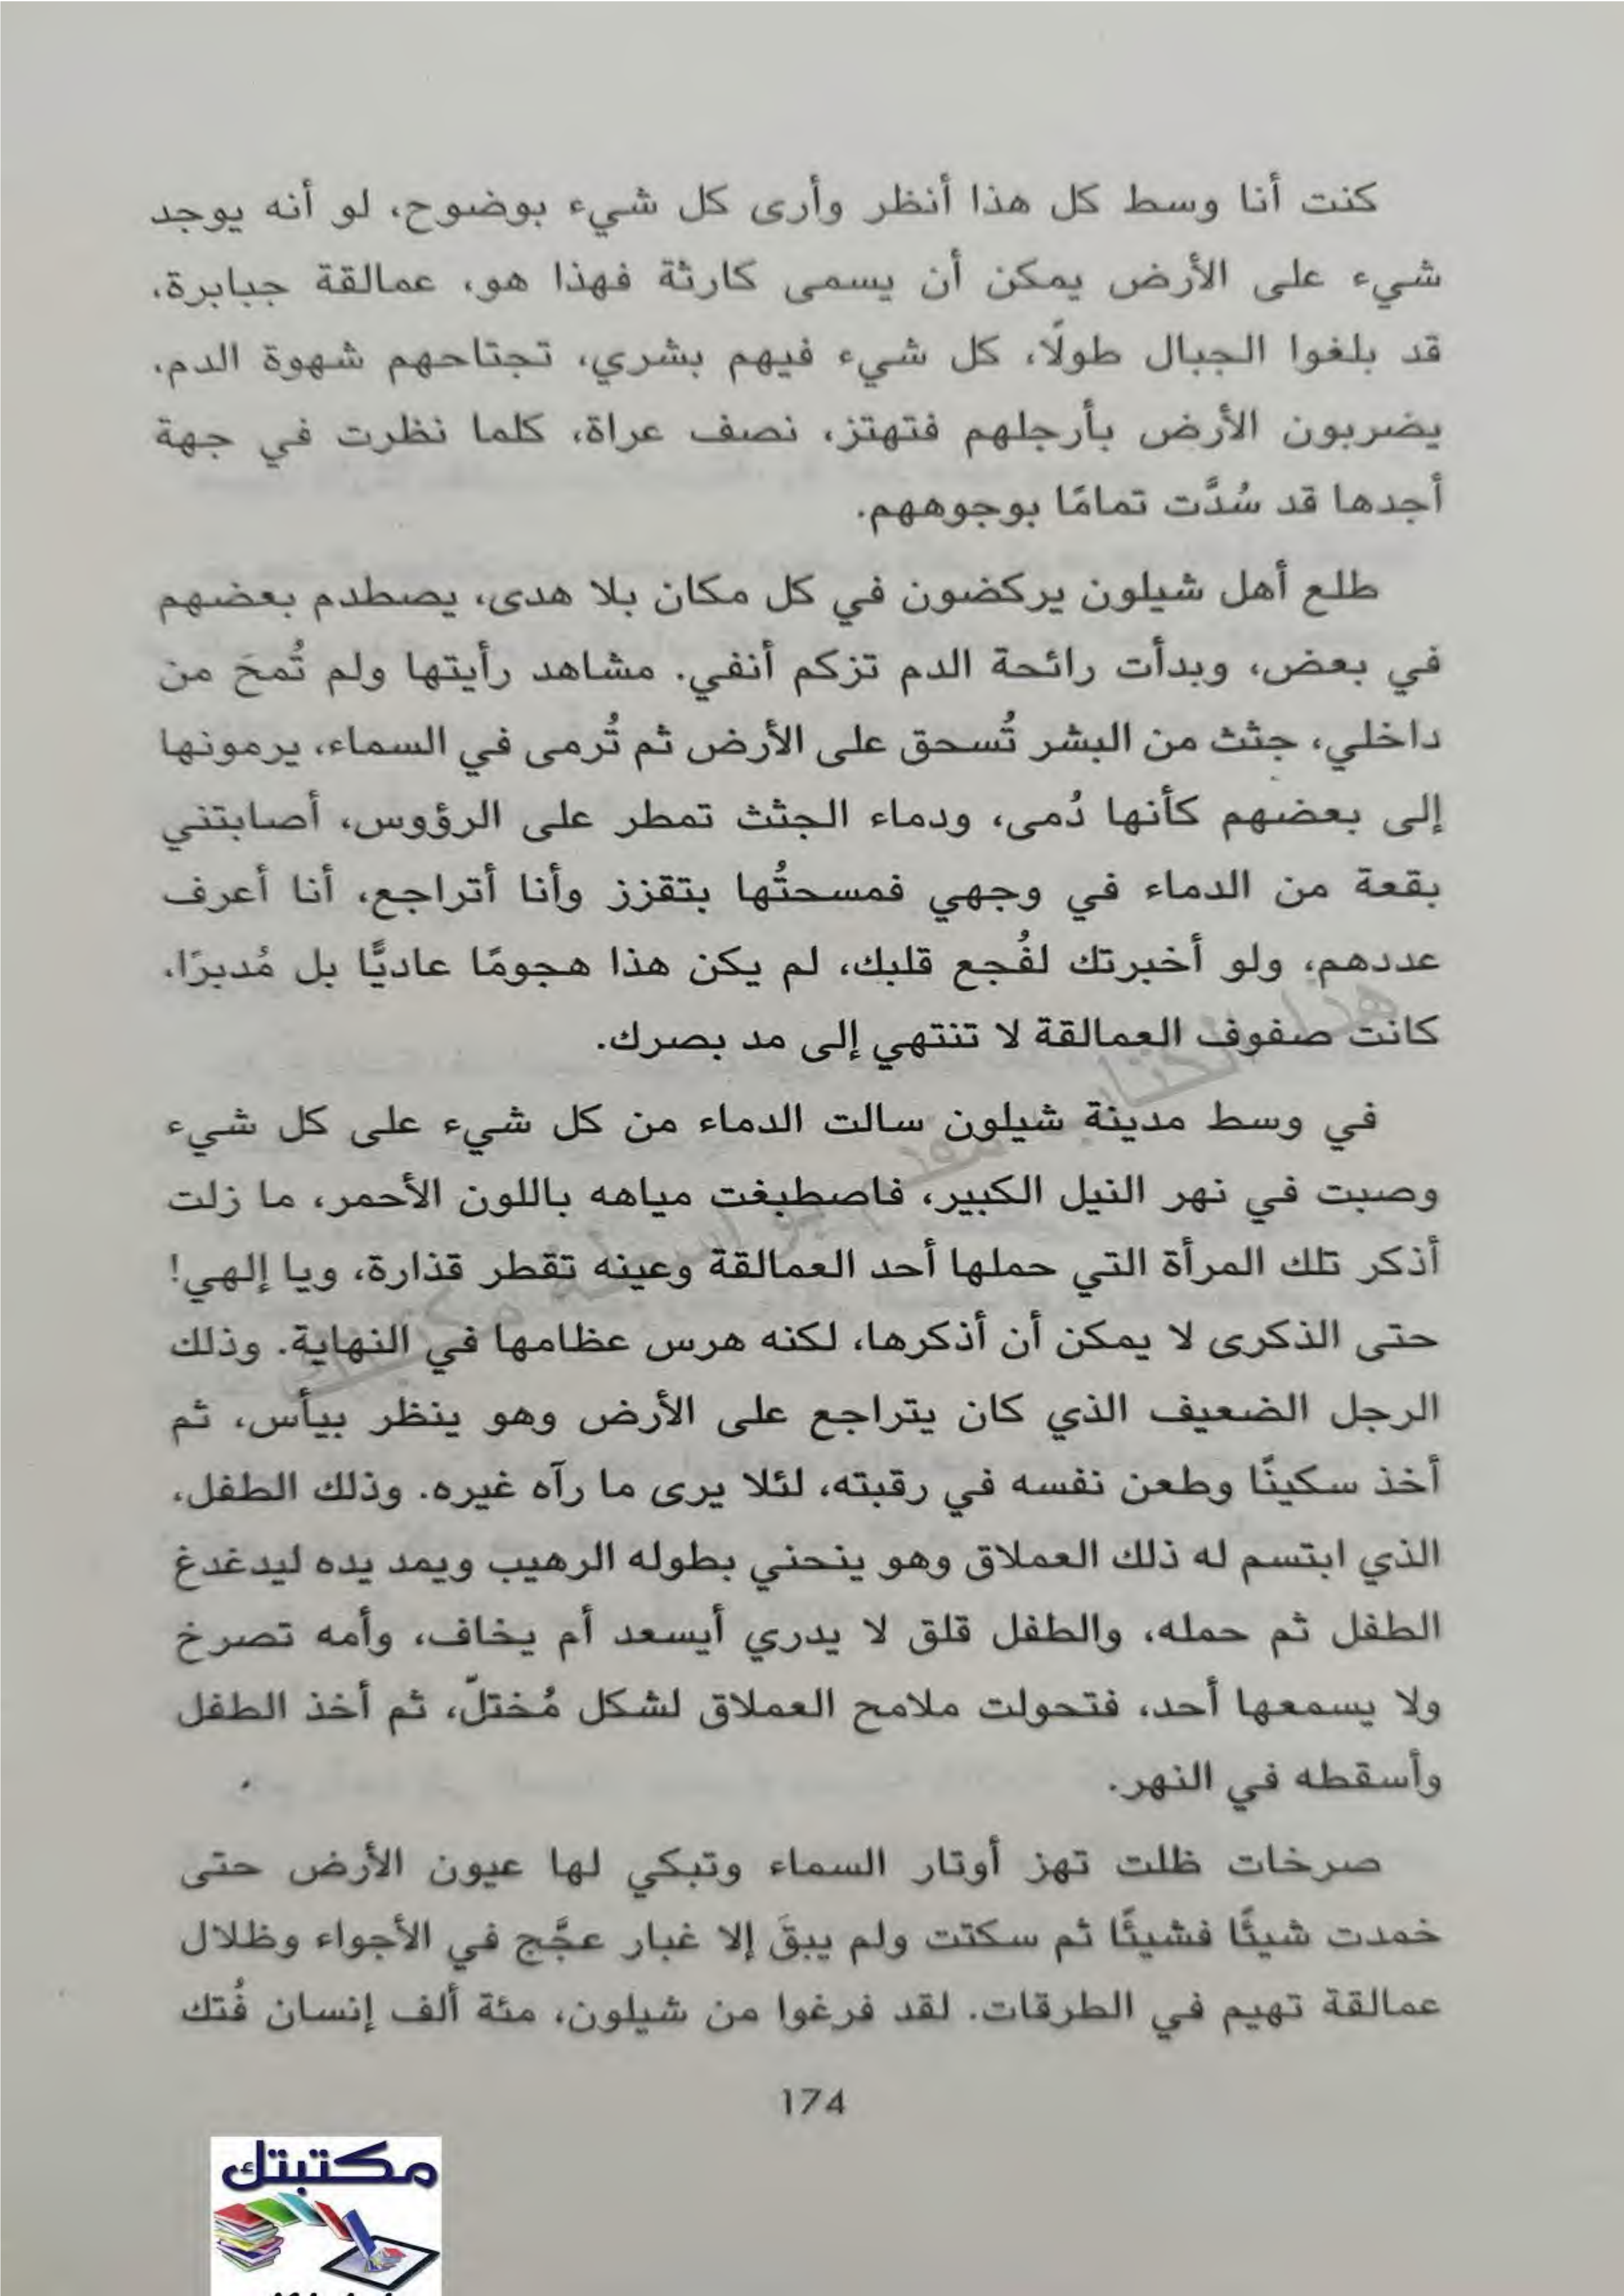 كنت أنا وسط كل هذا أنظر وأرى كل شيء بوضوح، لو أنه يوجد
شيء على الأرض يمكن أن يسمى كارثة فهذا هو، عمالقة جبابرة،
قد بلغوا الجبال طولًا، كل شيء فيهم بشري، تجتاحهم شهوة الدم،
يضربون الأرض بأرجلهم فتهتز، نصف عراة، كلما نظرت في جهة
أجدها قد سُدَّت تمامًا بوجوههم.
طلع أهل شيلون يركضون في كل مكان بلا هدى، يصطدم بعضهم
في بعض، وبدأت رائحة الدم تزكم أنفي. مشاهد رأيتها ولم تُمحَ من
داخلي، جثث من البشر تُسحق على الأرض ثم تُرمى في السماء، يرمونها
إلى بعضهم كأنها دُمى، ودماء الجثث تمطر على الرؤوس، أصابتني
بقعة من الدماء في وجهي فمسحتُها بتقزز وأنا أتراجع، أنا أعرف
عددهم، ولو أخبرتك لفُجع قلبك، لم يكن هذا هجومًا عاديًّا بل مُدبرًا،
كانت صفوف العمالقة لا تنتهي إلى مد بصرك.
في وسط مدينة شيلون سالت الدماء من كل شيء على كل شيء
وصبت في نهر النيل الكبير، فاصطبغت مياهه باللون الأحمر، ما زلت
أذكر تلك المرأة التي حملها أحد العمالقة وعينه تقطر قذارة، ويا إلهي!
حتى الذكرى لا يمكن أن أذكرها، لكنه هرس عظامها في النهاية. وذلك
الرجل الضعيف الذي كان يتراجع على الأرض وهو ينظر بيأس، ثم
أخذ سكينًا وطعن نفسه في رقبته، لئلا يرى ما رآه غيره. وذلك الطفل،
الذي ابتسم له ذلك العملاق وهو ينحني بطوله الرهيب ويمد يده ليدغدغ
الطفل ثم حمله، والطفل قلق لا يدري أيسعد أم يخاف، وأمه تصرخ
ولا يسمعها أحد، فتحولت ملامح العملاق لشكل مُختلّ، ثم أخذ الطفل
وأسقطه في النهر.
صرخات ظلت تهز أوتار السماء وتبكي لها عيون الأرض حتى
خمدت شيئًا فشيئًا ثم سكتت ولم يبقَ إلا غبار عجَّج في الأجواء وظلال
عمالقة تهيم في الطرقات. لقد فرغوا من شيلون، مئة ألف إنسان فُتك
174
مكتبتك